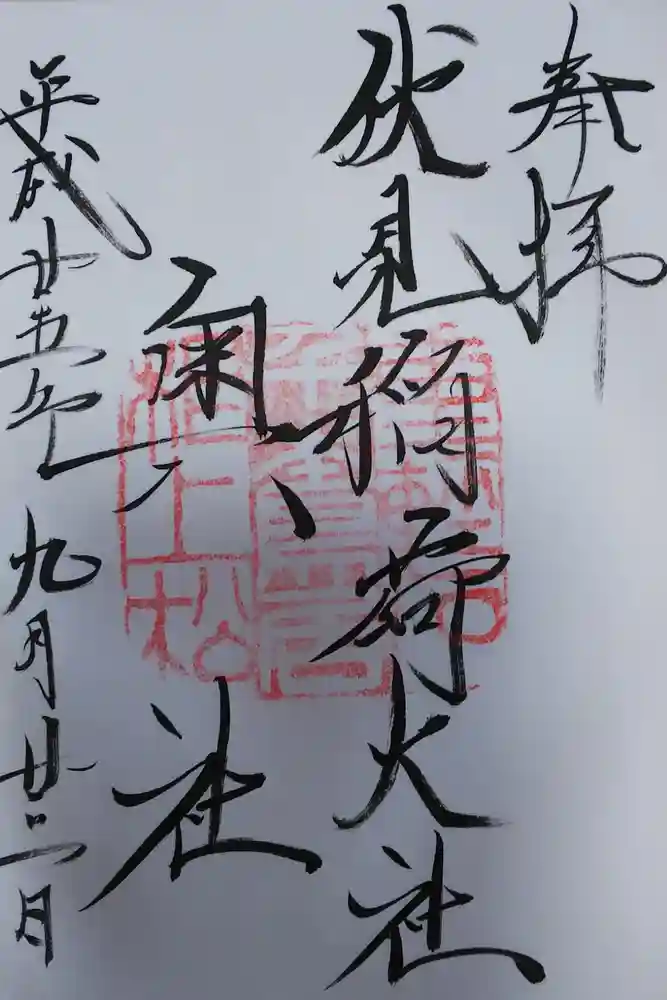 奉拝
伏見稲荷大社
奥社
平成廿五年九月廿三日